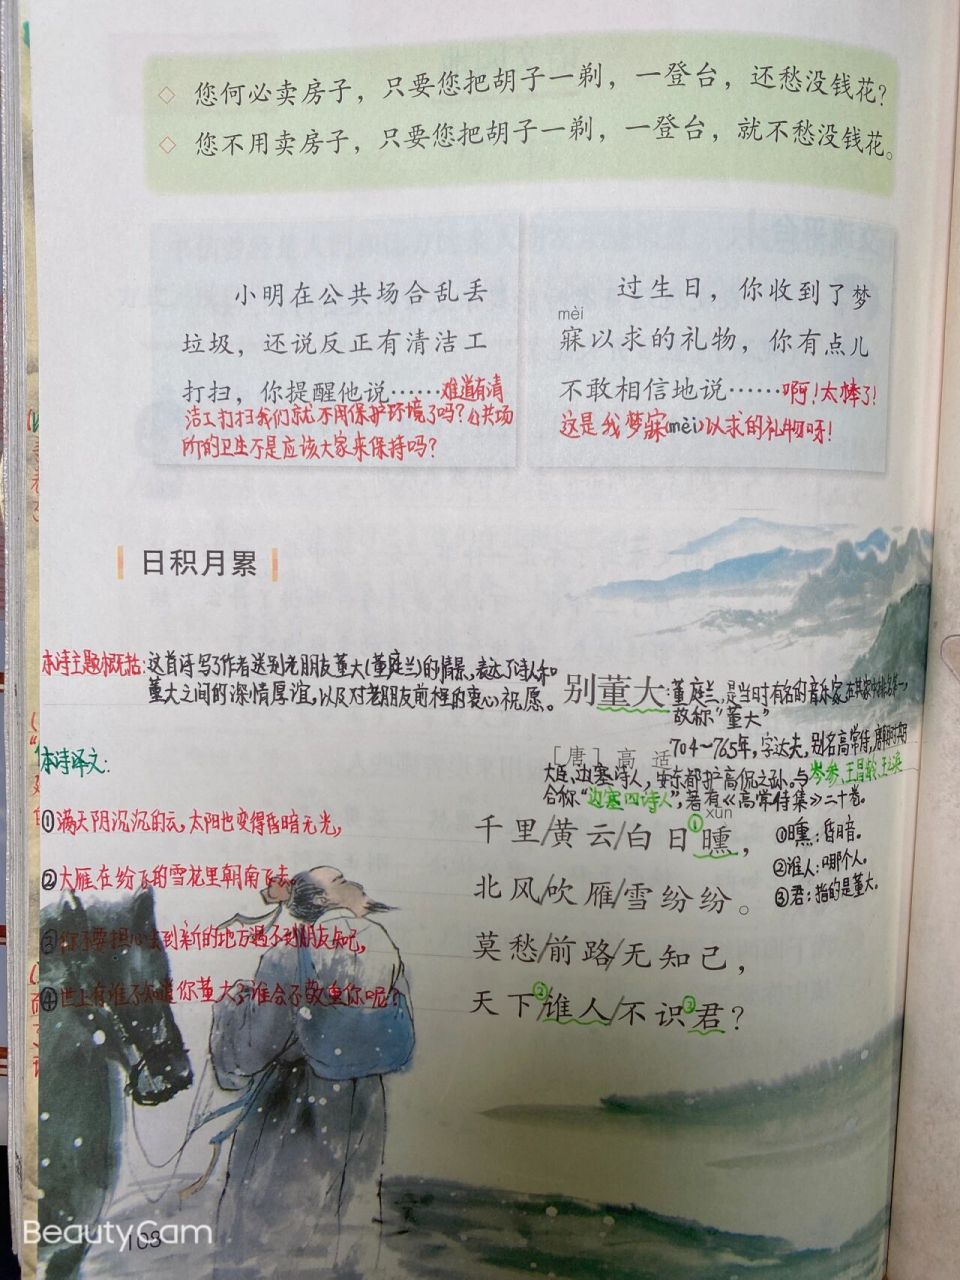 ◇ 您何必卖房子，只要您把胡子一剃，一登台，还愁没钱花？
◇ 您不用卖房子，只要您把胡子一剃，一登台，就不愁没钱花。
小明在公共场合乱丢
垃圾，还说反正有清洁工
打扫，你提醒他说……难道有清
洁工打扫我们就不用保护环境了吗？公共场
所的卫生不是应该大家来保持吗？
过生日，你收到了梦
mèi
寐以求的礼物，你有点儿
不敢相信地说……啊！太棒了！
这是我梦寐(mèi)以求的礼物呀！
日积月累
本诗主题概括：这首诗写了作者送别老朋友董大(董庭兰)的情景，表达了诗人和
董大之间的深情厚谊，以及对老朋友前程的衷心祝愿。
别董大：董庭兰，是当时有名的音乐家，在其家中排名第一，
故称“董大”
[唐] 高 适
704～765年，字达夫，别名高常侍，唐朝时期
大臣、边塞诗人，安东都护高侃之孙。与岑参、王昌龄、王之涣
合称“边塞四诗人”，著有《高常侍集》二十卷。
xūn
千里/黄云/白日①曛，
北风/吹雁/雪纷纷。
莫愁/前路/无知己，
天下/②谁人/不识③君？
①曛：昏暗。
②谁人：哪个人。
③君：指的是董大。
本诗译文：
①满天阴沉沉的云，太阳也变得昏暗无光，
②大雁在纷飞的雪花里朝南飞去。
③你不要担心去到新的地方遇不到朋友知己，
④世上有谁不知道你董大？谁会不敬重你呢？
108
BeautyCam